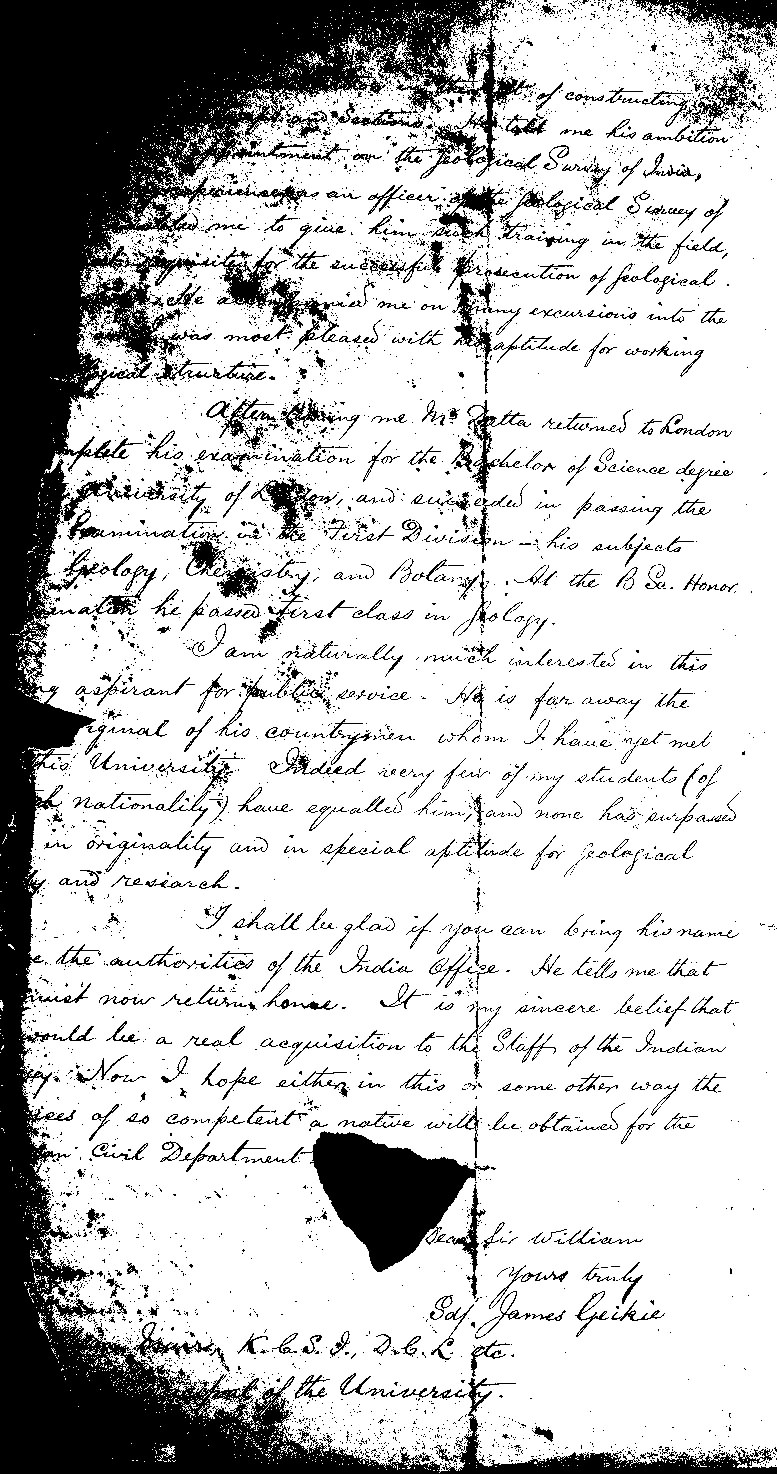 of constructing
and Sections. He told me his ambition
appointment on the Geological Survey of India,
experience as an officer of the Geological Survey of
enabled me to give him such training in the field,
requisite for the successful prosecution of Geological
He accompanied me on many excursions into the
was most pleased with his aptitude for working
logical structure.
After leaving me Mr Datta returned to London
mplete his examination for the Bachelor of Science degree
University of London, and succeeded in passing the
Examination in the First Division — his subjects
Geology, Chemistry, and Botany. At the B Sc. Honor
ination he passed first class in Geology.
I am naturally much interested in this
ng aspirant for public service. He is far away the
riginal of his countrymen whom I have yet met
this University. Indeed very few of my students (of
h nationality) have equalled him, and none has surpassed
in originality and in special aptitude for Geological
y and research.
I shall be glad if you can bring his name
e the authorities of the India Office. He tells me that
must now return home. It is my sincere belief that
would be a real acquisition to the Staff of the Indian
ey. Now I hope either in this or some other way the
ices of so competent a native will be obtained for the
ian Civil Department
Dear Sir William
Yours truly
Sd/. James Geikie
K.C.S.I., D.C.L etc.
cipal of the University.